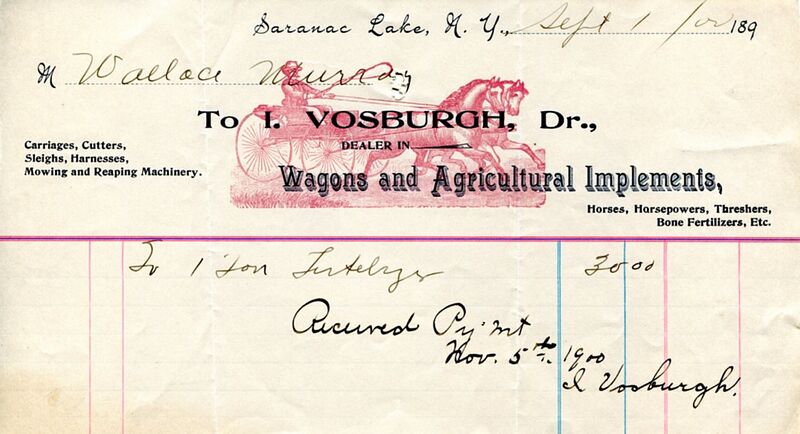 Saranac Lake, N. Y., Sept 1 /00 189
M Wallace Murray
To I. VOSBURGH, Dr.,
DEALER IN
Carriages, Cutters,
Sleighs, Harnesses,
Mowing and Reaping Machinery.
Wagons and Agricultural Implements,
Horses, Horsepowers, Threshers,
Bone Fertilizers, Etc.
To 1 Ton Fertelizer 30 00
Received Py'mt
Nov. 5th. 1900
I Vosburgh.